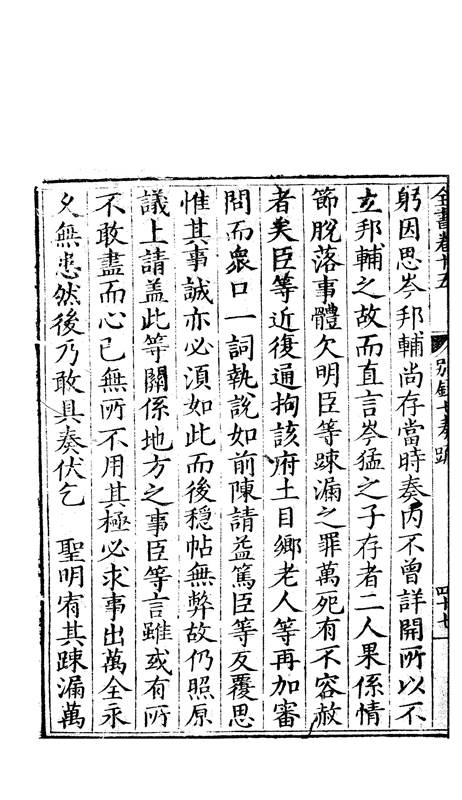 全書卷十五 別錄七奏疏 四十七
躬因思岑邦輔尚存當時奏內不曾詳開所以不
立邦輔之故而直言岑猛之子存者二人果係情
節脫落事體欠明臣等踈漏之罪萬死有不容赦
者矣臣等近復通拘該府土目鄉老人等再加審
問而衆口一詞執說如前陳請益篤臣等反覆思
惟其事誠亦必須如此而後穩帖無弊故仍照原
議上請盖此等關係地方之事臣等言雖或有所
不敢盡而心已無所不用其極必求事出萬全永
久無患然後乃敢具奏伏乞 聖明宥其踈漏萬